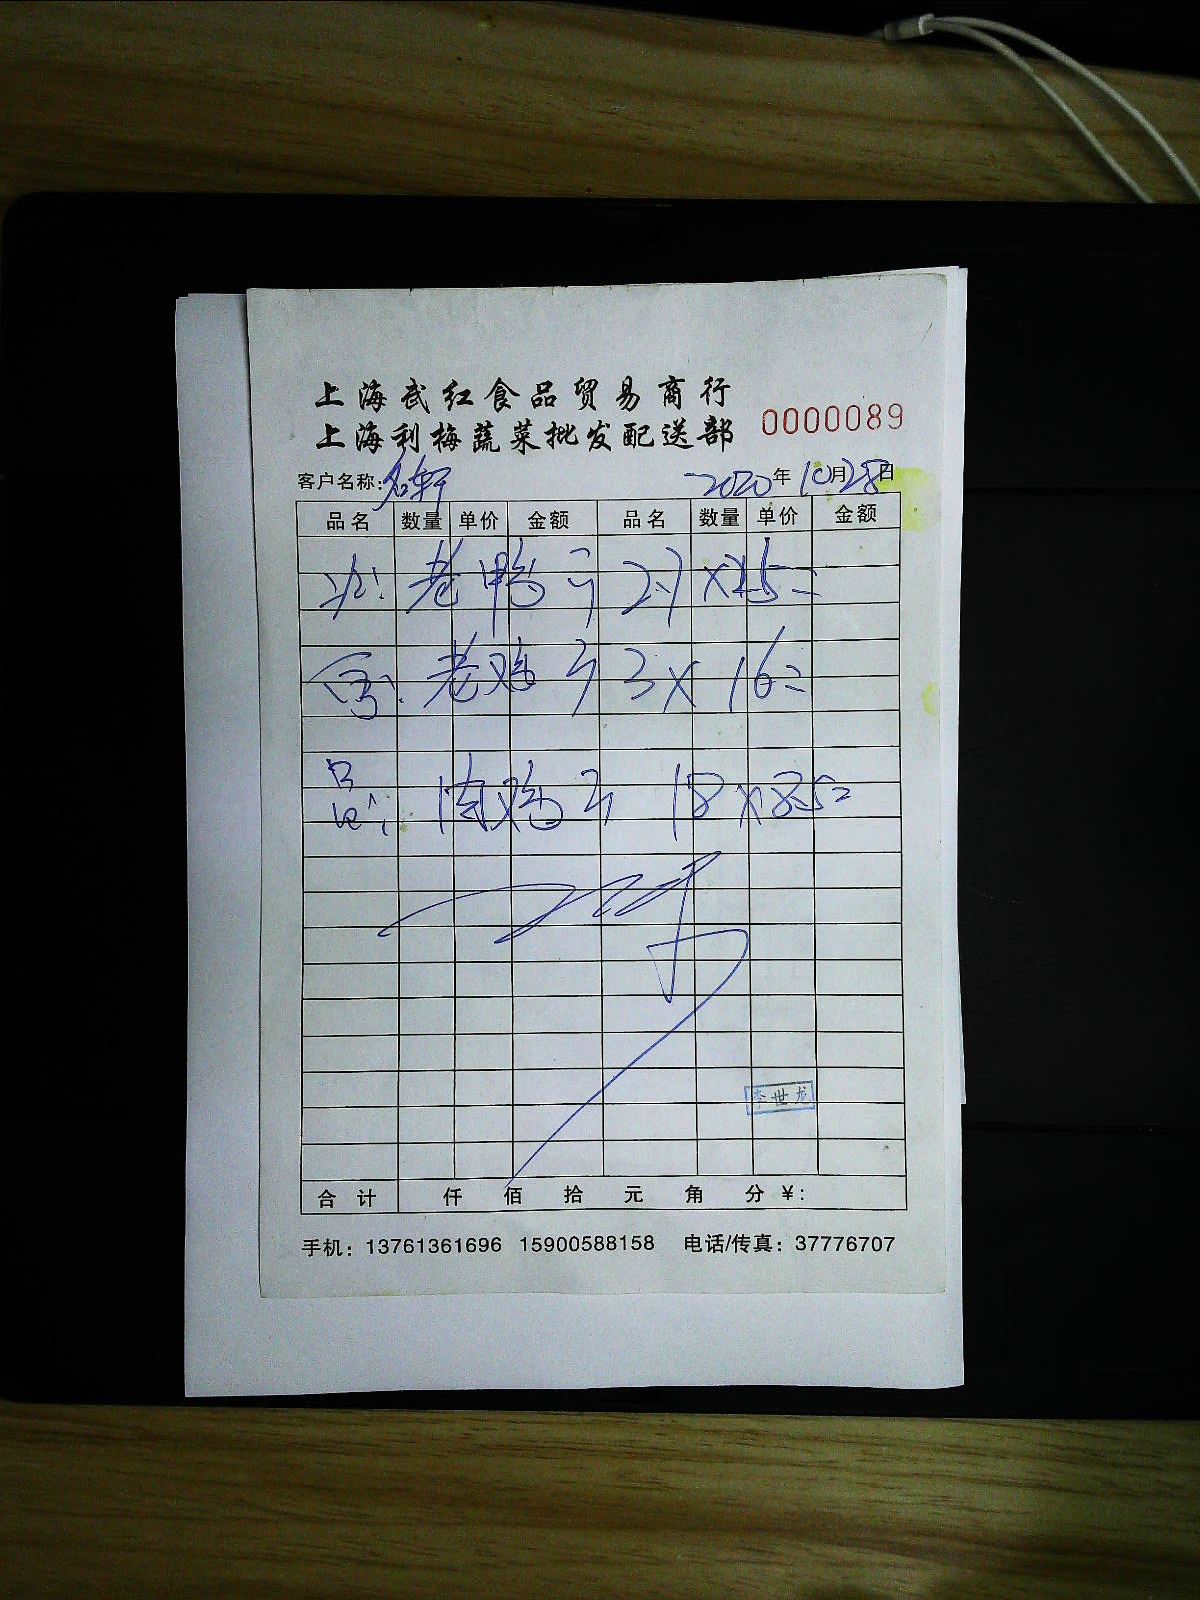 上海武红食品贸易商行
上海利梅蔬菜批发配送部
0000089
客户名称: 名轩 2020年10月28日
品名 数量 单价 金额 品名 数量 单价 金额
老鸭
老鸡 3×16=
肉鸡 18×8.5=
李世龙
合计 仟 佰 拾 元 角 分 ¥:
手机: 13761361696 15900588158 电话/传真: 37776707